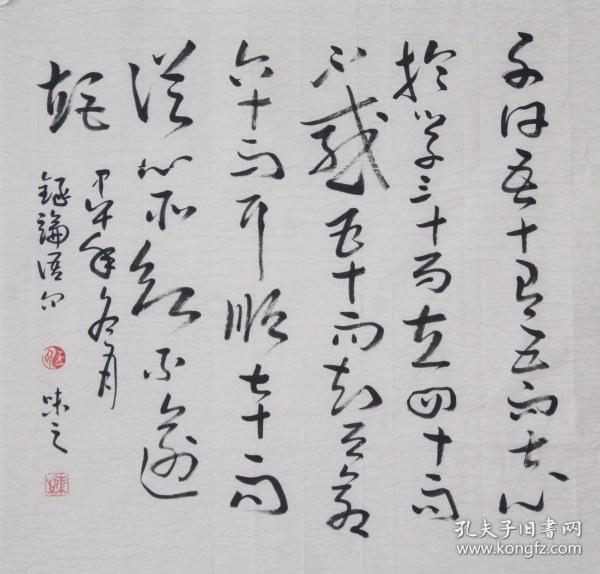 子曰吾十有五而志心
於学三十而立四十而
不惑五十而知天命
六十而耳顺七十而
从心所欲不逾
矩
甲午年冬月
録論语句
味之
孔夫子旧书网
www.kongfz.com